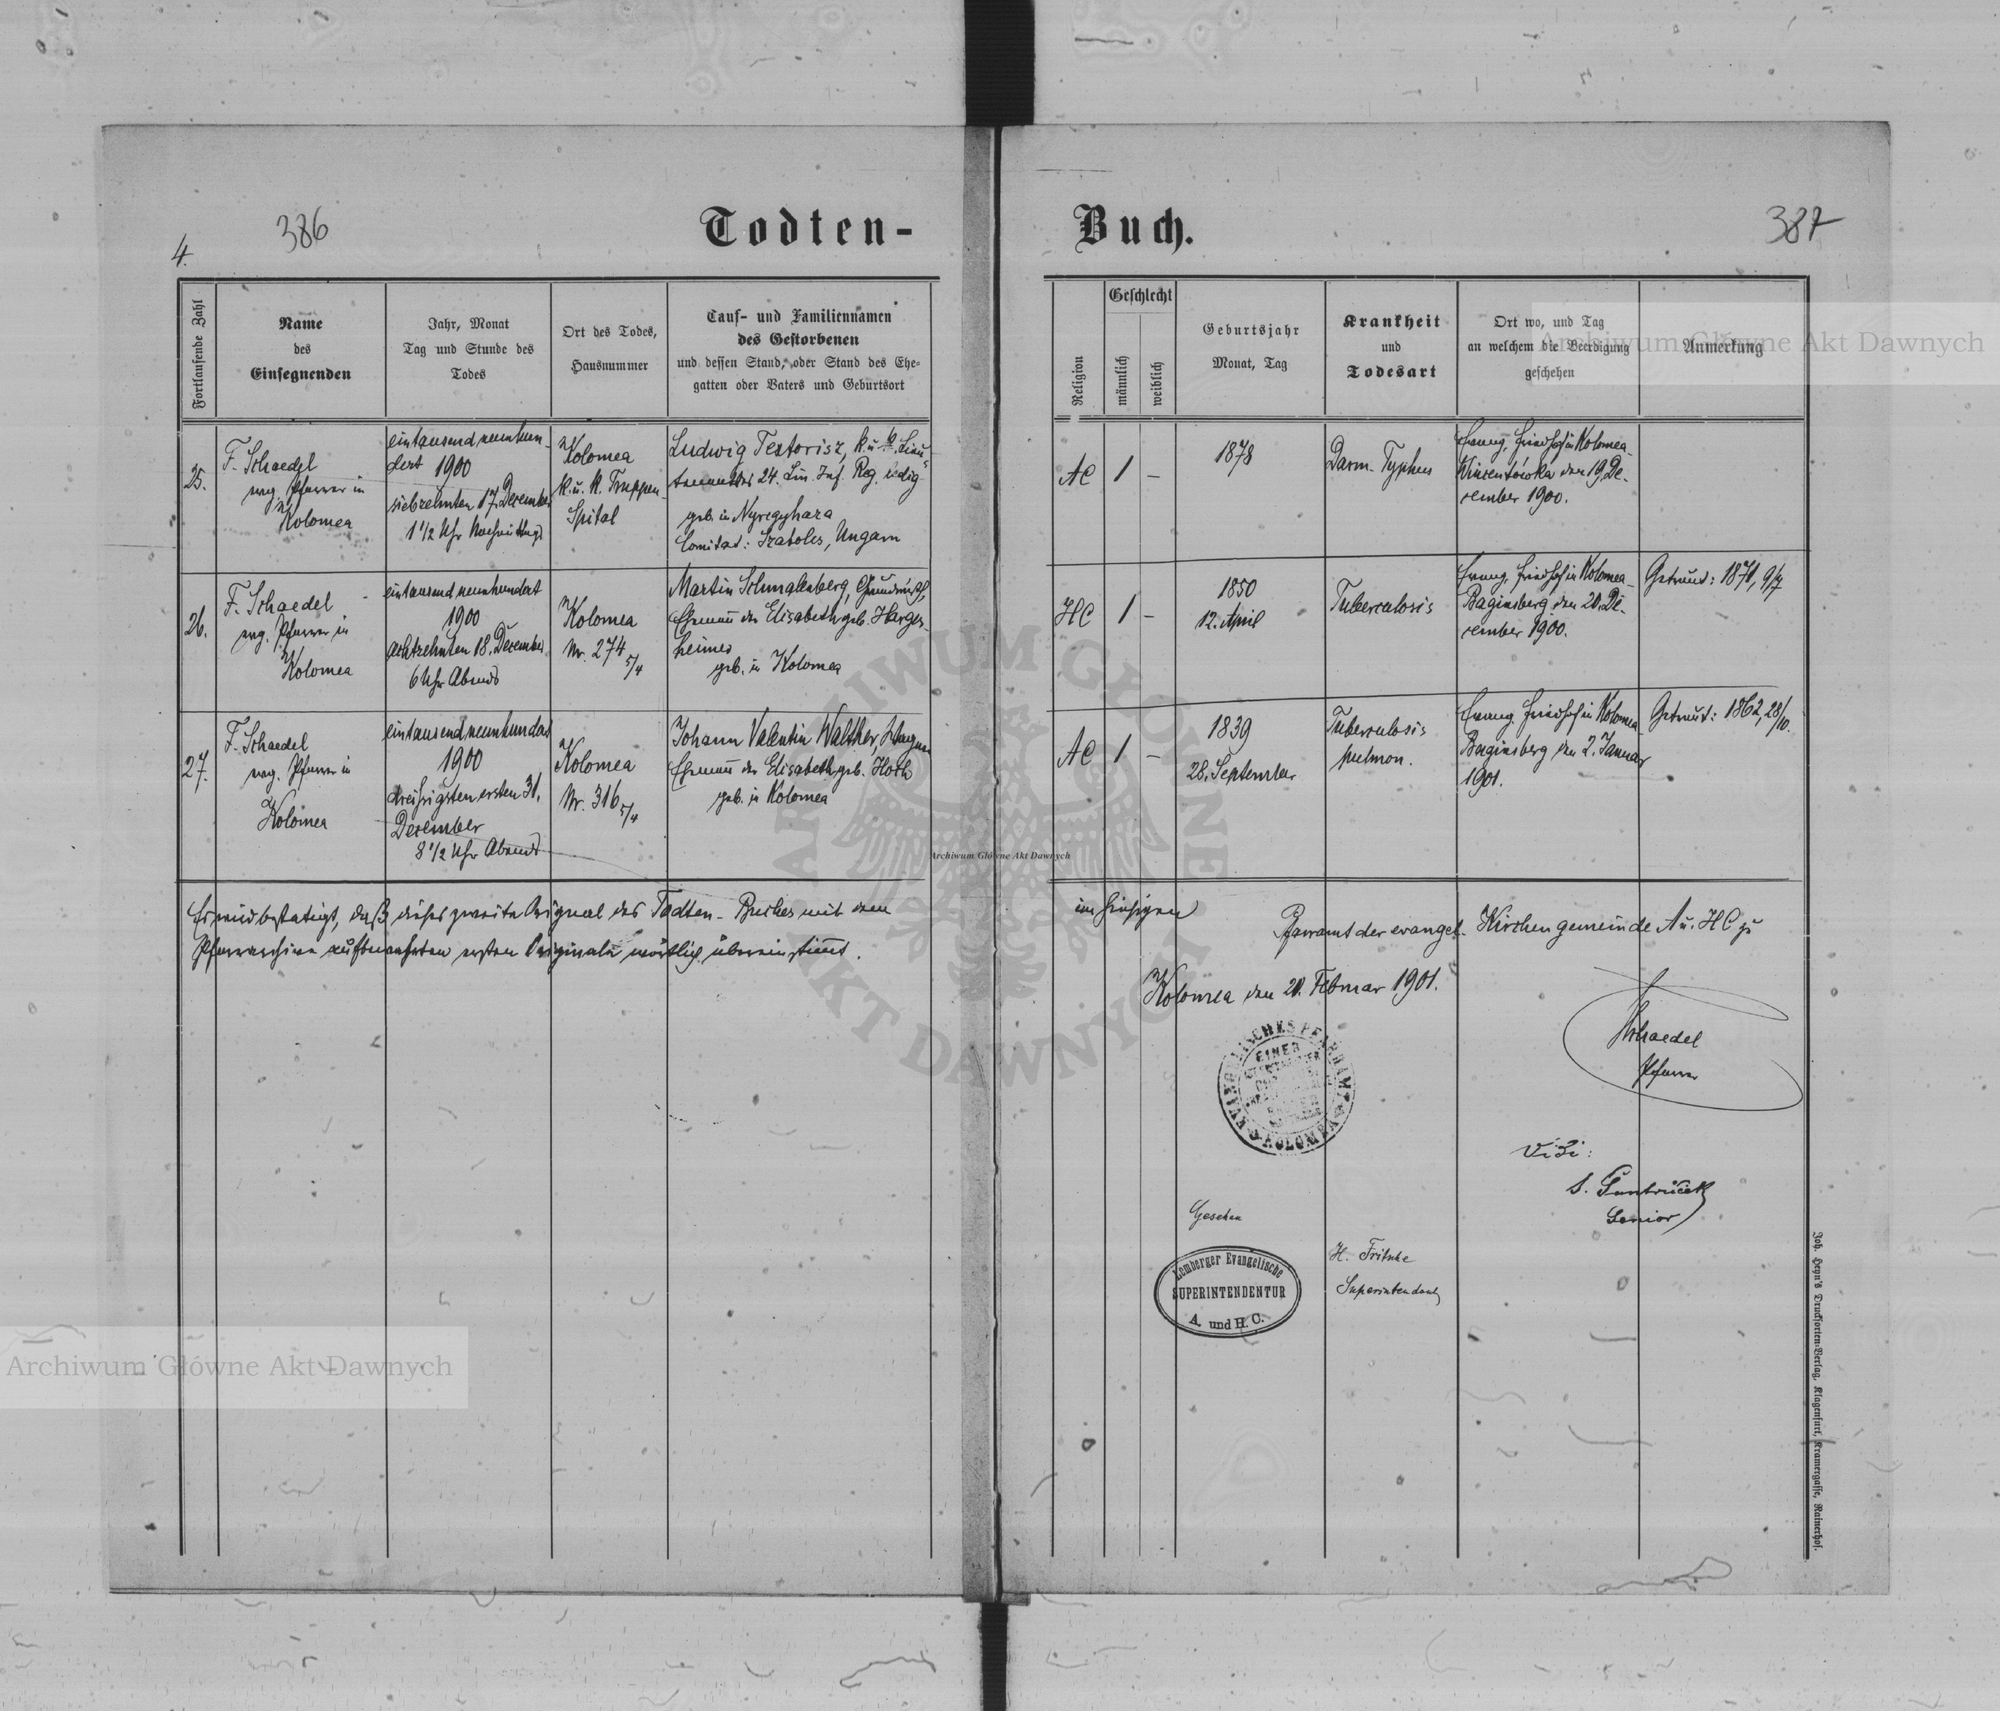 386
4.
Todten-
Buch.
387
Fortlaufende Zahl
Name
des
Einsegnenden
Jahr, Monat
Tag und Stunde des
Todes
Ort des Todes,
Hausnummer
Tauf- und Familiennamen
des Gestorbenen
und dessen Stand, oder Stand des Ehe-
gatten oder Vaters und Geburtsort
Religion
Geschlecht
männlich
weiblich
Geburtsjahr
Monat, Tag
Krankheit
und
Todesart
Ort wo, und Tag
an welchem die Beerdigung
geschehen
Anmerkung
25.
F. Schaedel
evg. Pfarrer in
Kolomea
eintausendneunhun-
dert 1900
siebzehnten 17. December
1 1/2 Uhr Nachmittags
Kolomea
k. u. k. Truppen-
Spital
Ludwig Textorisz, k. u. k. Lieu-
tenant des 24. Lin. Inf. Reg. ledig
geb. in Nyregyhaza
Comitat: Szatolcs, Ungarn
AC
1
–
1878
Darm-Typhus
Evang. Friedhof in Kolomea-
Wincentówka den 19. De-
cember 1900.
26.
F. Schaedel
evg. Pfarrer in
Kolomea
eintausendneunhundert
1900
achtzehnten 18. December
6 Uhr Abends
Kolomea
Nr. 274 5/4
Martin Schmalenberg, Grundwirth,
Ehemann der Elisabeth geb. Harges-
heimer
geb. in Kolomea
HC
1
–
1850
12. April
Tuberculosis
Evang. Friedhof in Kolomea-
Baginsberg den 20. De-
cember 1900.
Getraut: 1871, 9/7
27.
F. Schaedel
evg. Pfarrer in
Kolomea
eintausendneunhundert
1900
dreißigsten ersten 31.
December
8 1/2 Uhr Abends
Kolomea
Nr. 316 5/4
Johann Valentin Walther, Wagner
Ehemann der Elisabeth geb. Hoth
geb. in Kolomea
AC
1
–
1839
28. September
Tuberculosis
pulmon.
Evang. Friedhof in Kolomea-
Baginsberg den 2. Januar
1901.
Getraut: 1862, 28/10.
Es wird bestätigt, daß dieses zweite Original des Todten-Buches mit dem im hiesigen
Pfarrarchive aufbewahrten ersten Originale wörtlich übereinstimmt.
Pfarramt der evangel. Kirchengemeinde A u. HC zu
Kolomea den 20. Februar 1901.
EVANGELISCHES PFARRAMT
KOLOMEA
Schaedel
Pfarrer
Vidi:
Senior
Gesehen
Lemberger Evangelische
SUPERINTENDENTUR
A. und H. C.
H. Fritsche
Superintendent
Joh. Heyn's Drucksorten-Verlag, Klagenfurt, Kramergasse, Rainerhof.
Archiwum Główne Akt Dawnych
Archiwum Główne Akt Dawnych
Archiwum Główne Akt Dawnych
ARCHIWUM GŁÓWNE AKT DAWNYCH